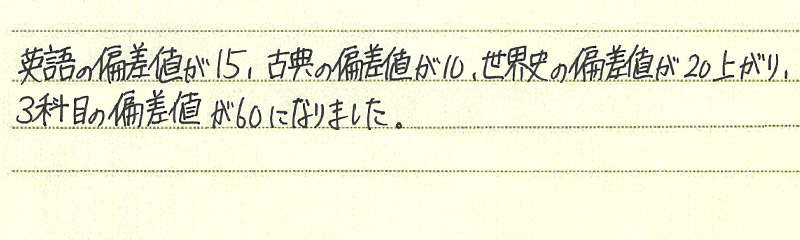 英語の偏差値が15、古典の偏差値が10、世界史の偏差値が20上がり、
3科目の偏差値が60になりました。